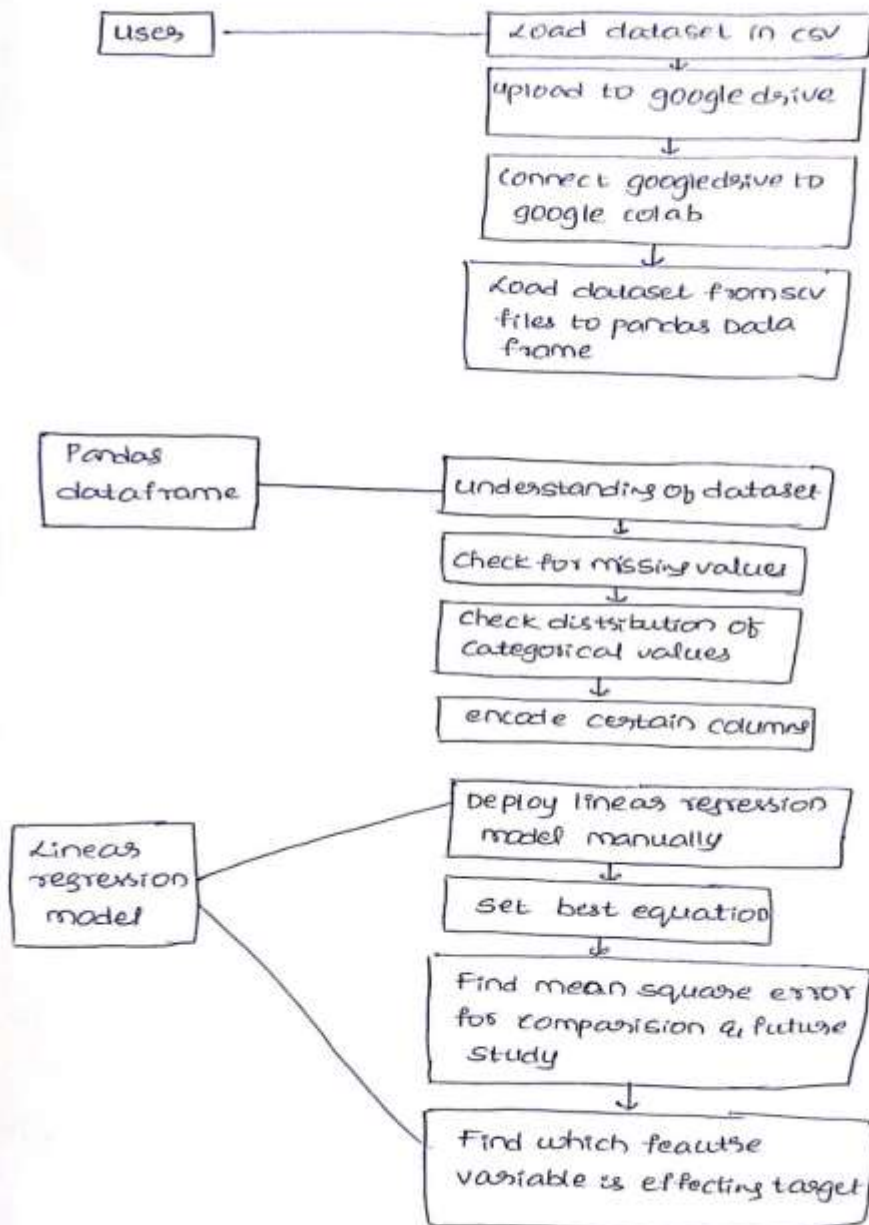 User
Load dataset in csv
upload to google drive
connect googledrive to
google colab
Load dataset from scv
files to pandas Data
frame
Pandas
dataframe
understanding of dataset
check for missing values
check distribution of
categorical values
encode certain columns
Linear
regression
model
Deploy linear regression
model manually
set best equation
Find mean square error
for comparision & future
study
Find which feautre
variable is effecting target